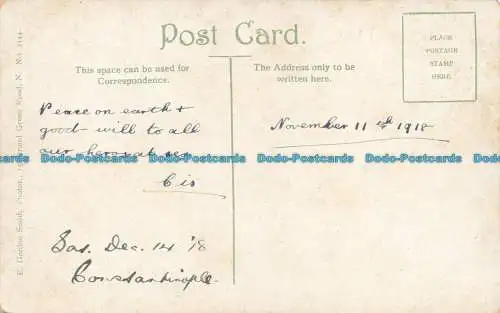 Post Card.
PLACE
POSTAGE
STAMP
HERE
This space can be used for
Correspondence.
The Address only to be
written here.
Peace on earth +
good will to all
our heroes at sea
Cis
November 11th 1918
Dodo-Postcards Dodo-Postcards Dodo-Postcards Dodo-Postcards Dodo-Postcards
Sat. Dec. 14 '18
Constantinople.
E. Gordon Smith, Photo., Stroud Green Road, N. No.